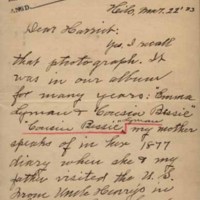 Hilo, Mar. 22nd 23
Dear Harriet:
Yes, I recall
that photograph. It
was in our album
for many years: Emma
Lyman & Cousin Bessie
Lyman
"Cousin Bessie", my mother
speaks of in her 1877
diary when she & my
father visited the U.S.
From Uncle Henry's in